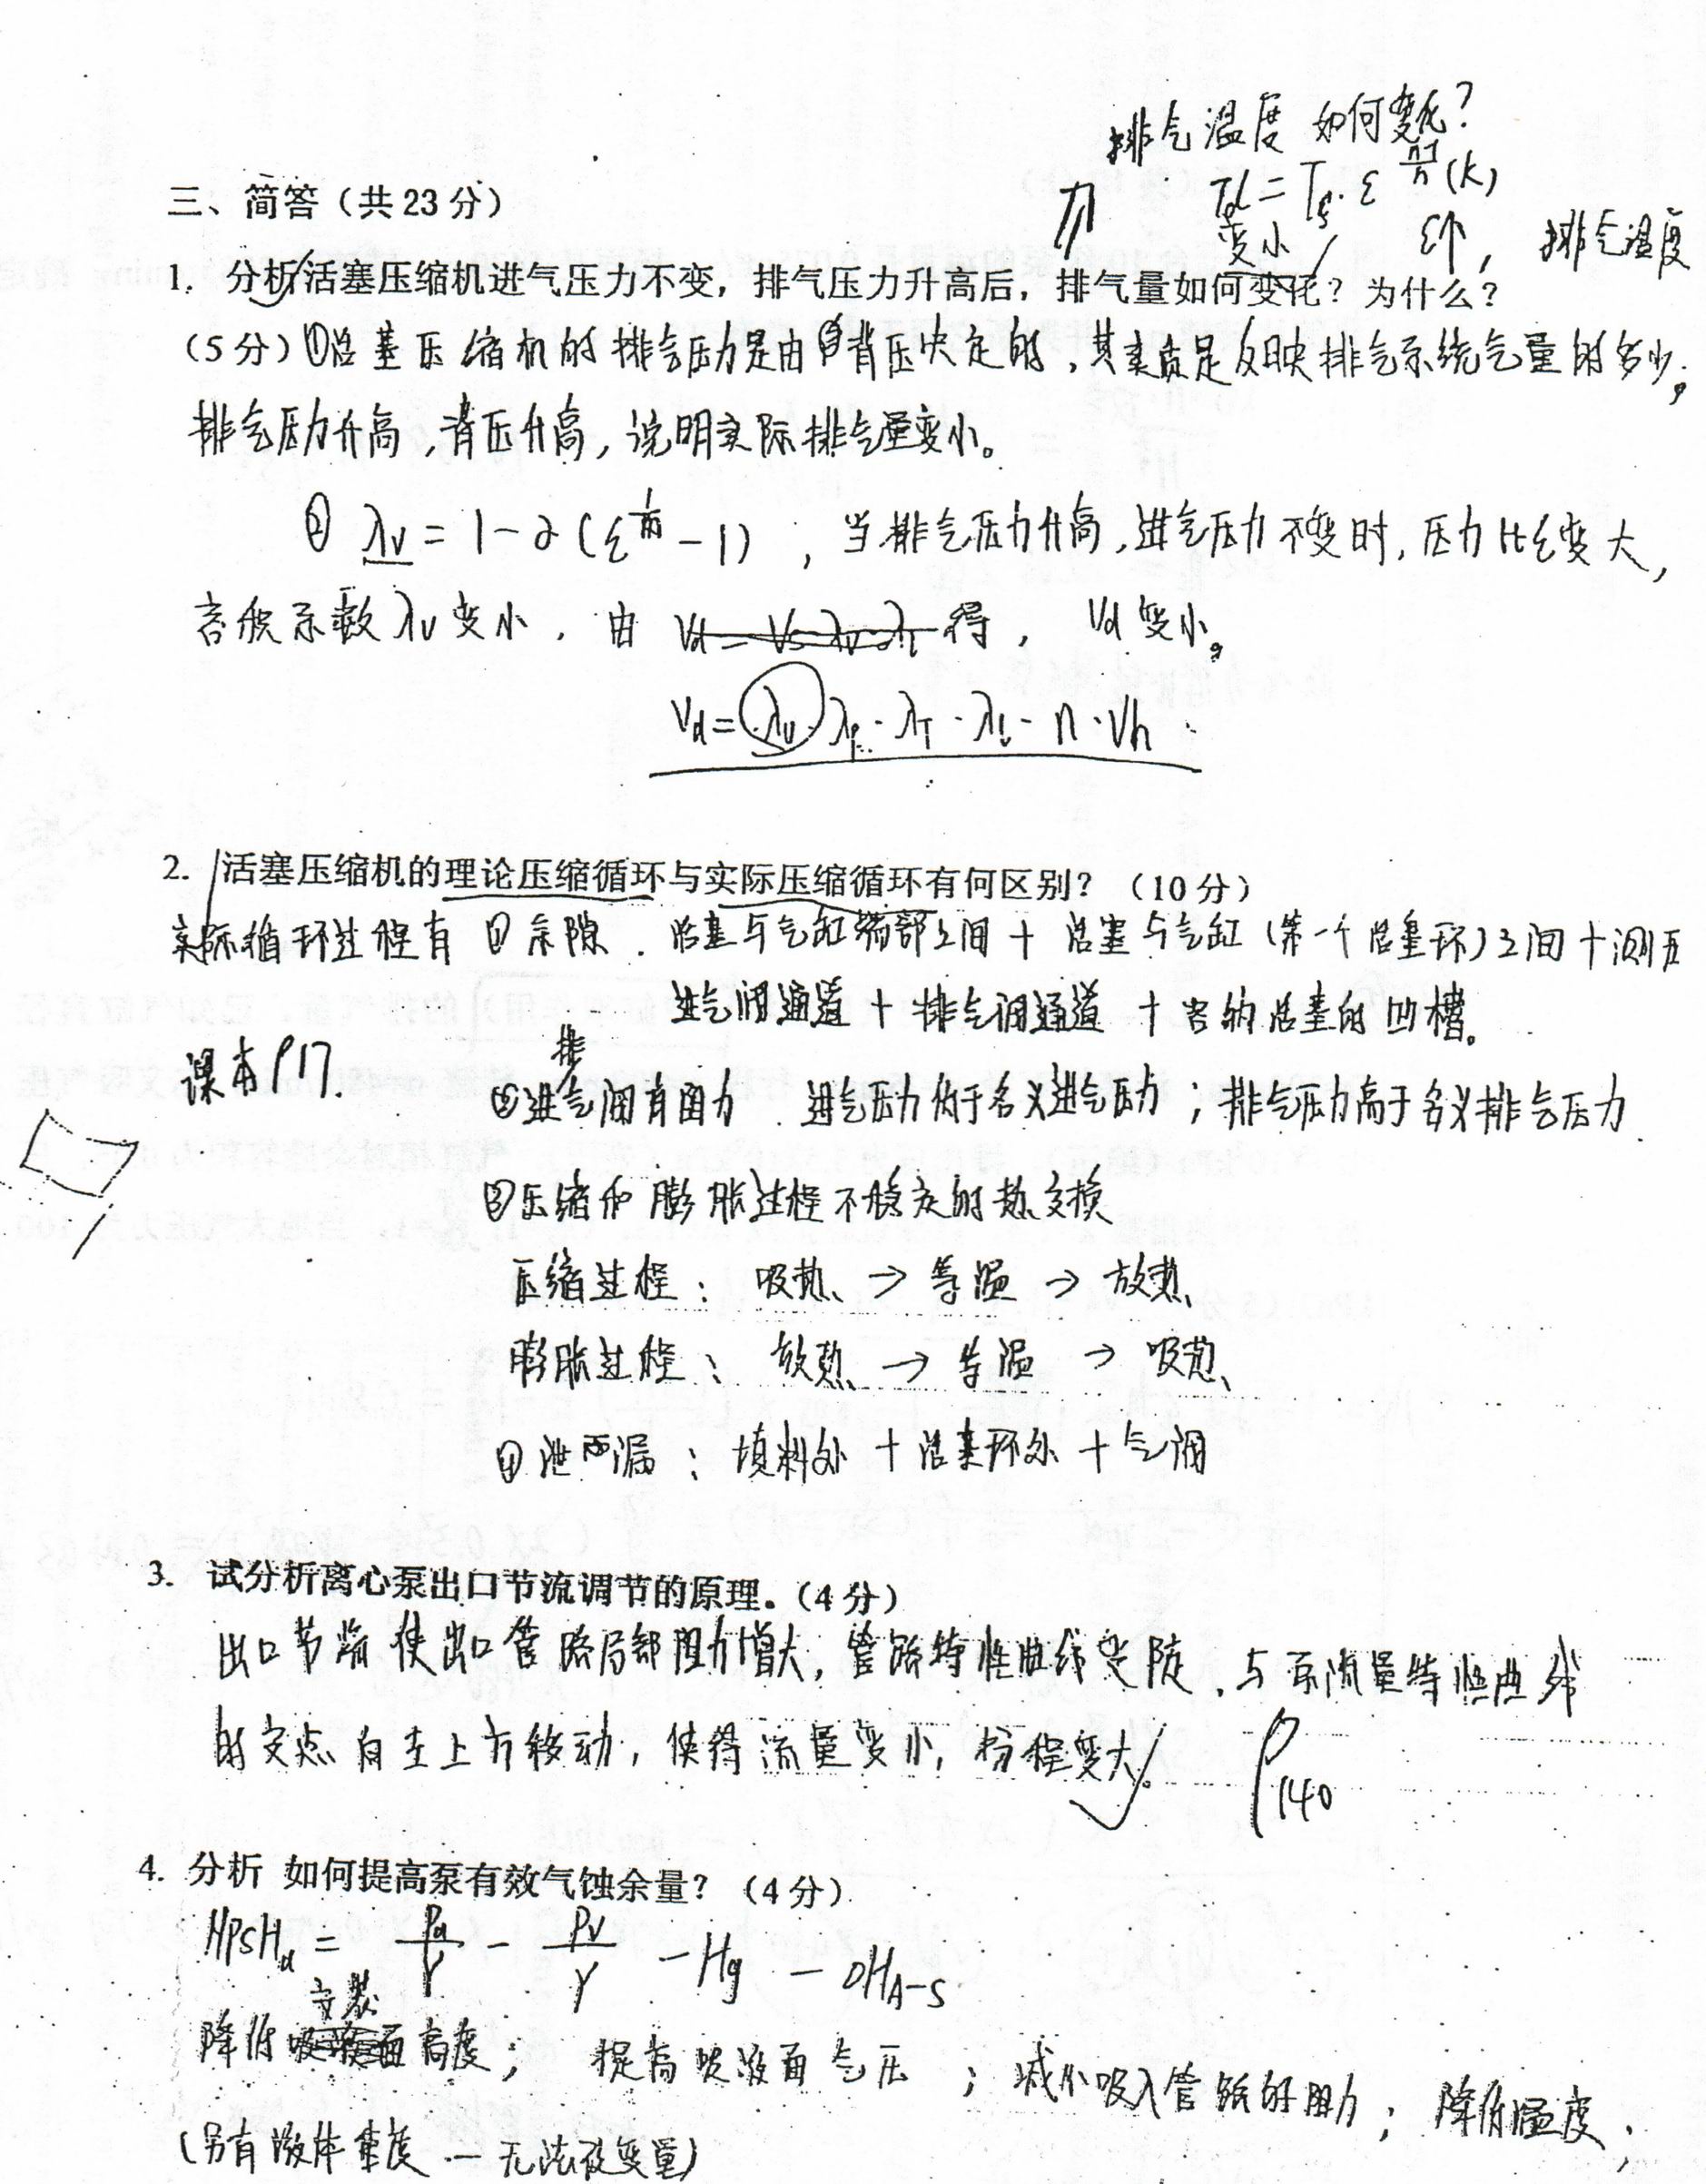 排气温度 如何变化?
Td = Ts · ε^(n-1)/n (k)
变小 ε↑, 排气温度
三、简答（共 23 分）
1. 分析活塞压缩机进气压力不变，排气压力升高后，排气量如何变化？为什么？
（5 分）①活塞压缩机的排气压力是由背压决定的，其实质是反映排气系统气量的多少，
排气压力升高，背压升高，说明实际排气量变小。
② λv = 1-α(ε^1/m -1)，当排气压力升高，进气压力不变时，压力比ε变大，
容积系数λv变小．由 得， Vd变小。
Vd = λv · λp · λT · λl · n · Vh
2. 活塞压缩机的理论压缩循环与实际压缩循环有何区别？（10 分）
实际循环过程有 ①余隙． 活塞与气缸端部之间 + 活塞与气缸(第一个活塞环)之间 + 测压
进气阀通道 + 排气阀通道 + 容纳活塞的凹槽。
课本P17.
排
②进气阀有阻力．进气压力低于名义进气压力；排气压力高于名义排气压力．
③压缩和膨胀过程不稳定的热交换
压缩过程： 吸热 → 等温 → 放热
膨胀过程： 放热 → 等温 → 吸热
④泄漏： 填料处 + 活塞环处 + 气阀
3. 试分析离心泵出口节流调节的原理。（4 分）
出口节流使出口管路局部阻力增大，管路特性曲线变陡，与泵流量特性曲线
的交点向左上方移动，使得流量变小，扬程变大。
P140
4. 分析 如何提高泵有效气蚀余量？（4 分）
NPSHa = Pa/γ - Pv/γ - Hg - ΔHA-S
安装
降低高度； 提高吸液面气压 ； 减小吸入管路的阻力； 降低温度；
(另有液体重度 — 无法改变量)